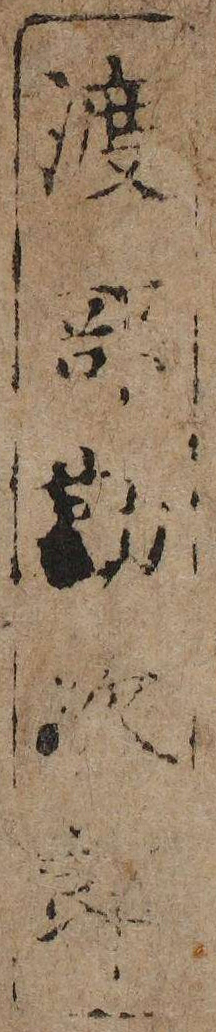 渡部勘次郎